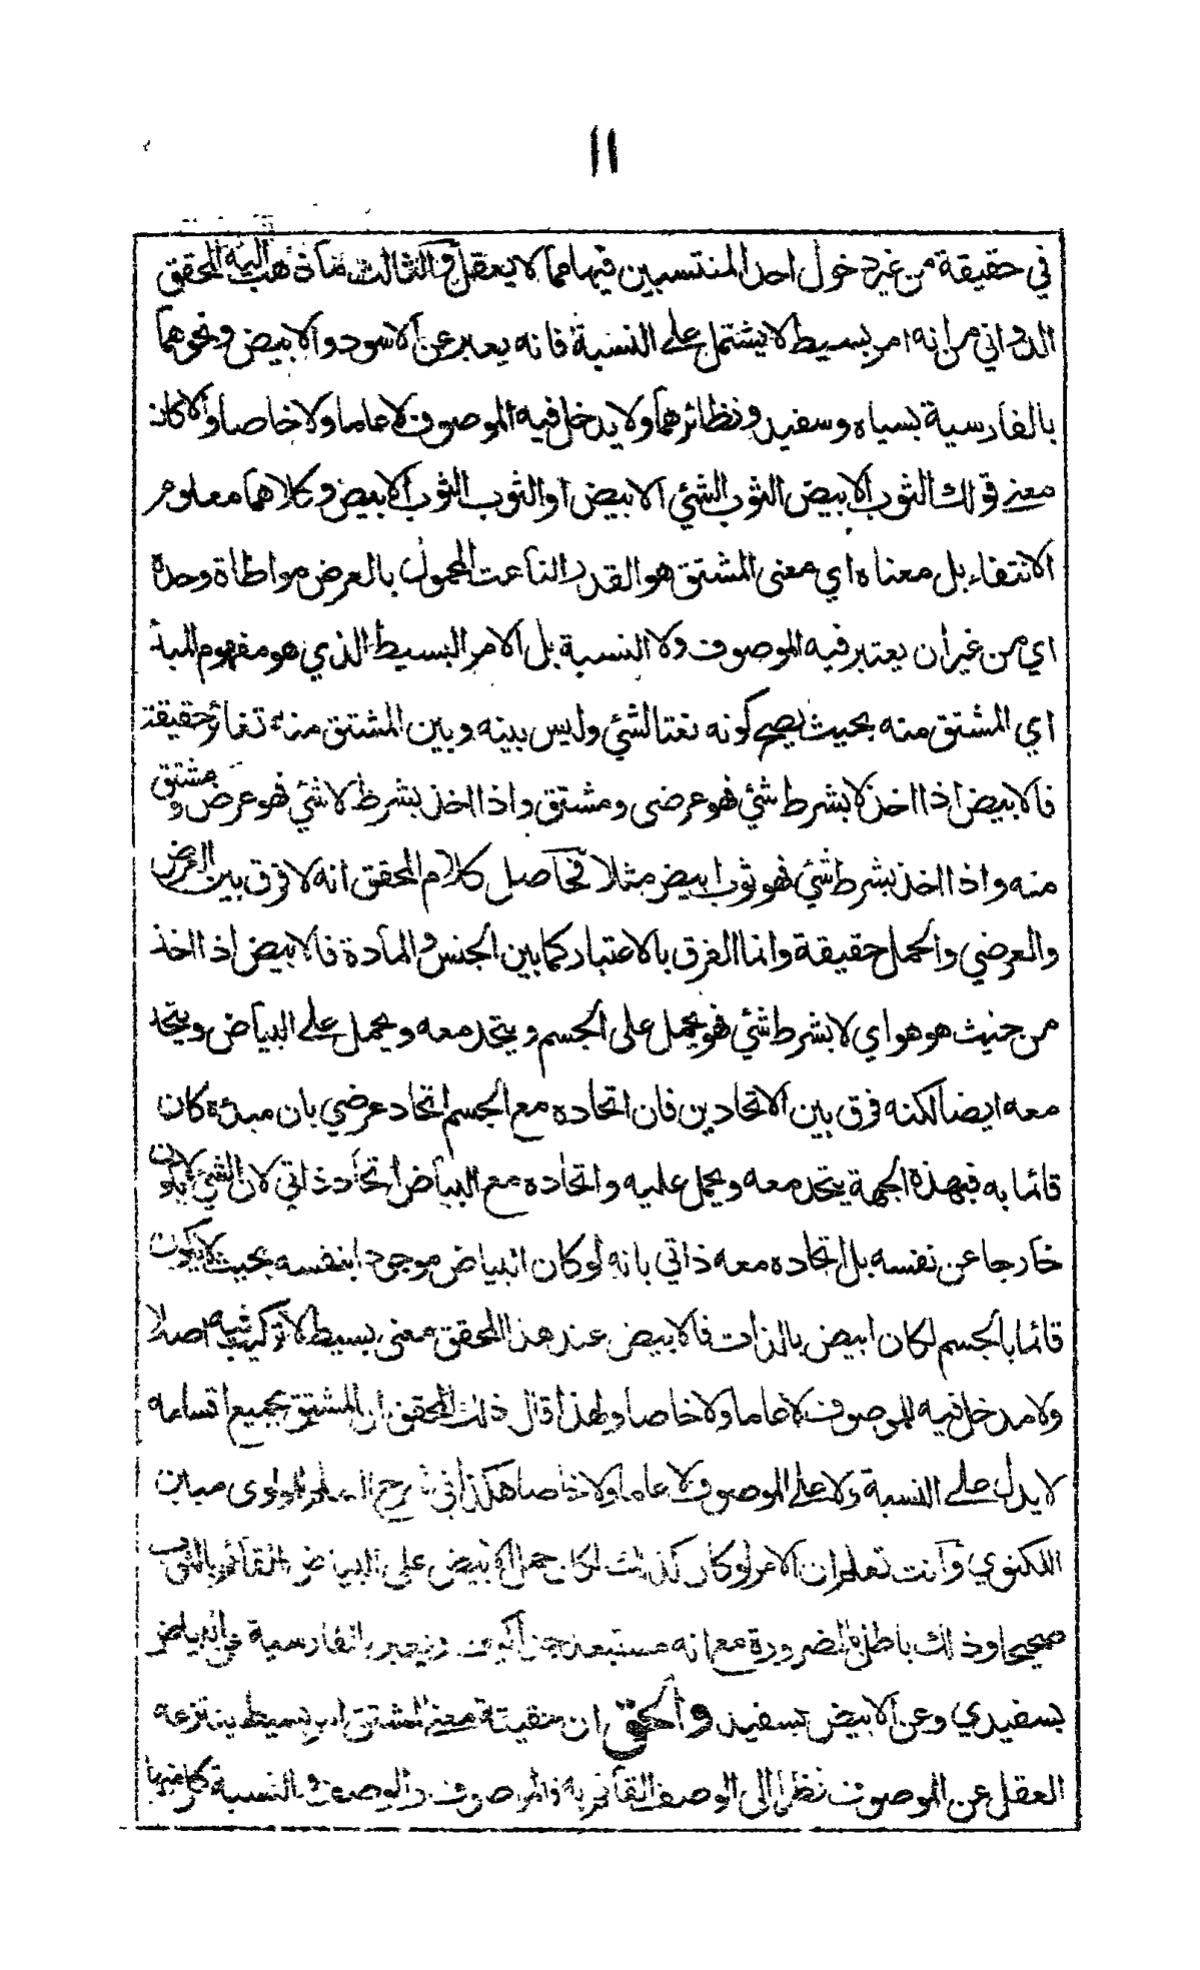 ١١
في حقيقة من غير دخول احد المنتسبين فيها مما لا يعقل والثالث ما ذهب اليه المحقق
الدواني من انه امر بسيط لا يشتمل على النسبة فانه يعبر عن الاسود والابيض ونحوهما
بالفارسية بسياه وسفيد ونظائرهما ولا يدخل فيه الموصوف لا عاما ولا خاصا والا كان
معنى قولك الثوب الابيض الثوب الشئي الابيض او الثوب الثوب الابيض وكلاهما معلوم
الانتفاء بل معناه اي معنى المشتق هو القدر الناعت المحمول بالعرض مواطاة وحده
اي من غير ان يعتبر فيه الموصوف ولا النسبة بل الامر البسيط الذي هو مفهوم المبدأ
اي المشتق منه بحيث يصح كونه نعتا لشئي وليس بينه وبين المشتق منه تغائر حقيقة
فالابيض اذا اخذ لا بشرط شئي فهو عرضي ومشتق واذا اخذ بشرط لا شئي فهو عرض ومشتق
منه واذا اخذ بشرط شئي فهو ثوب ابيض مثلا فحاصل كلام المحقق انه لا فرق بين العرض
والعرضي والحمل حقيقة وانما الفرق بالاعتبار كما بين الجنس والمادة فالابيض اذا اخذ
من حيث هو هو اي لا بشرط شئي فهو يحمل على الجسم ويتحد معه ويحمل على البياض ويتحد
معه ايضا لكنه فرق بين الاتحادين فان اتحاده مع الجسم اتحاد عرضي بان مبدئه كان
قائما به فبهذه الجهة يتحد معه ويحمل عليه واتحاده مع البياض اتحاد ذاتي لان الشئ لا يكون
خارجا عن نفسه بل اتحاده معه ذاتي بانه لو كان البياض موجودا بنفسه بحيث لا يكون
قائما بالجسم لكان ابيض بالذات فالابيض عند هذا المحقق معنى بسيط لا تركيب فيه اصلا
ولا مدخل فيه للموصوف لا عاما ولا خاصا ولهذا قال ذلك المحقق ان المشتق بجميع اقسامه
لا يدل على النسبة ولا على الموصوف لا عاما ولا خاصا هكذا في شرح السلم للمولوي مبين
اللكنوي وانت تعلم ان الامر لو كان كذلك لكان حمل الابيض على البياض القائم بالثوب
صحيحا وذلك باطل بالضرورة مع انه مستبعد جدا كيف ويعبر بالفارسية عن البياض
بسفيدي وعن الابيض بسفيد والحق ان حقيقة معنى المشتق امر بسيط ينتزعه
العقل عن الموصوف نظرا الى الوصف القائم به والموصوف والوصف والنسبة كل منها